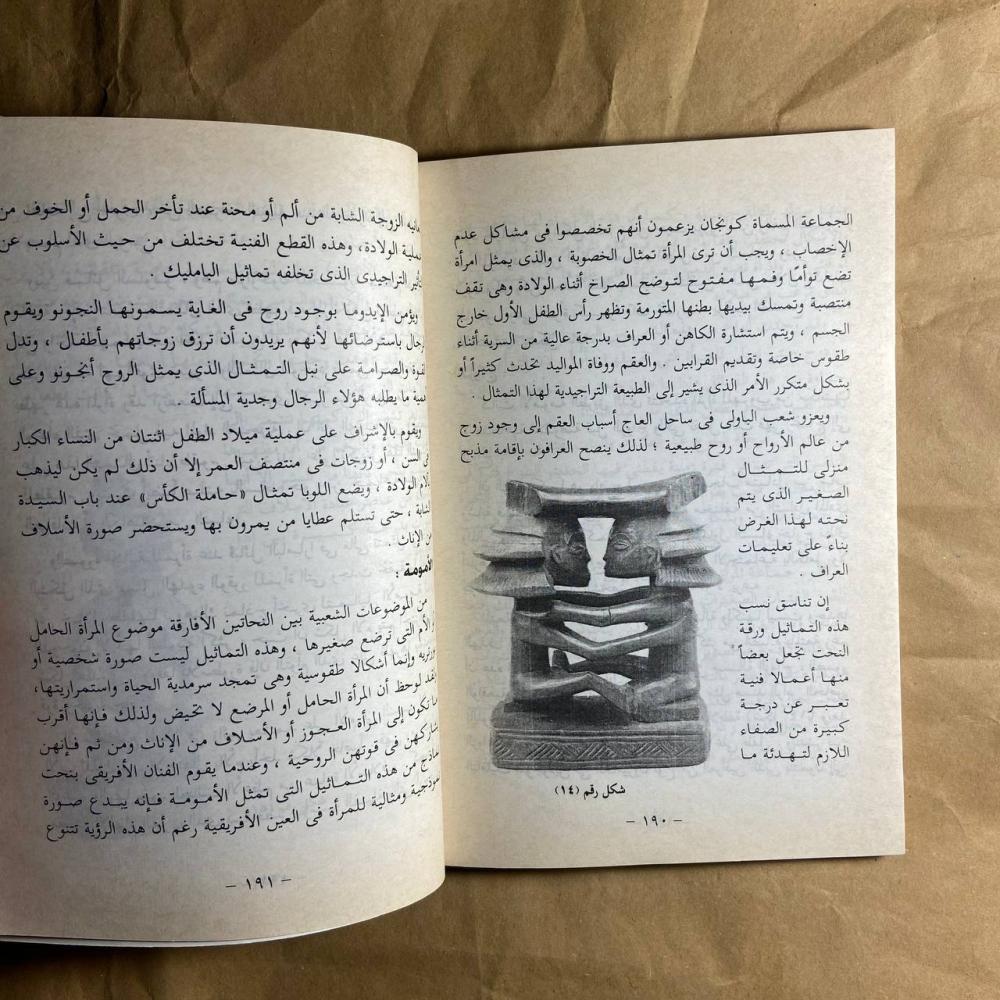 الجماعة المسماة كونجان يزعمون أنهم تخصصوا فى مشاكل عدم
الإخصاب ، ويجب أن ترى المرأة تمثال الخصوبة ، والذى يمثل امرأة
تضع توأمًا وفمها مفتوح لتوضح الصراخ أثناء الولادة وهى تقف
منتصبة وتمسك بيديها بطنها المتورمة وتظهر رأس الطفل الأول خارج
الجسم ، ويتم استشارة الكاهن أو العراف بدرجة عالية من السرية أثناء
طقوس خاصة وتقديم القرابين . والعقم ووفاة المواليد تحدث كثيراً أو
بشكل متكرر الأمر الذى يشير إلى الطبيعة التراجيدية لهذا التمثال .
ويعزو شعب الباولى فى ساحل العاج أسباب العقم إلى وجود زوج
من عالم الأرواح أو روح طبيعية ؛ لذلك ينصح العرافون بإقامة مذبح
منزلى للتمثال
الصغير الذى يتم
نحته لهذا الغرض
بناءً على تعليمات
العراف .
إن تناسق نسب
هذه التماثيل ورقة
النحت تجعل بعضاً
منها أعمالا فنية
تعبر عن درجة
كبيرة من الصفاء
اللازم لتهدئة ما
شكل رقم (١٤)
– ١٩٠ –
الزوجة الشابة من ألم أو محنة عند تأخر الحمل أو الخوف من
الولادة، وهذه القطع الفنية تختلف من حيث الأسلوب عن
التراجيدى الذى تخلفه تماثيل الباميليك .
ويؤمن الإيدوما بوجود روح فى الغابة يسمونها النجونو ويقوم
باسترضائها لأنهم يريدون أن ترزق زوجاتهم بأطفال ، وتدل
والصرامة على نبل التمثال الذى يمثل الروح أنجونو وعلى
ما يطلبه هؤلاء الرجال وجدية المسألة .
ويقوم بالإشراف على عملية ميلاد الطفل اثنتان من النساء الكبار
السن ، أو زوجات فى منتصف العمر إلا أن ذلك لم يكن ليذهب
الولادة ، ويضع اللوبا تمثال «حاملة الكأس» عند باب السيدة
، حتى تستلم عطايا من يمرون بها ويستحضر صورة الأسلاف
من الإناث .
الأمومة :
من الموضوعات الشعبية بين النحاتين الأفارقة موضوع المرأة الحامل
التى ترضع صغيرها ، وهذه التماثيل ليست صورة شخصية أو
وإنما أشكالا طقوسية وهى تمجد سرمدية الحياة واستمراريتها،
لوحظ أن المرأة الحامل أو المرضع لا تحيض ولذلك فإنها أقرب
تكون إلى المرأة العجوز أو الأسلاف من الإناث ومن ثم فإنهن
فى قوتهن الروحية ، وعندما يقوم الفنان الأفريقى بنحت
من هذه التماثيل التى تمثل الأمومة فإنه يبدع صورة
ومثالية للمرأة فى العين الأفريقية رغم أن هذه الرؤية تتنوع
– ١٩١ –